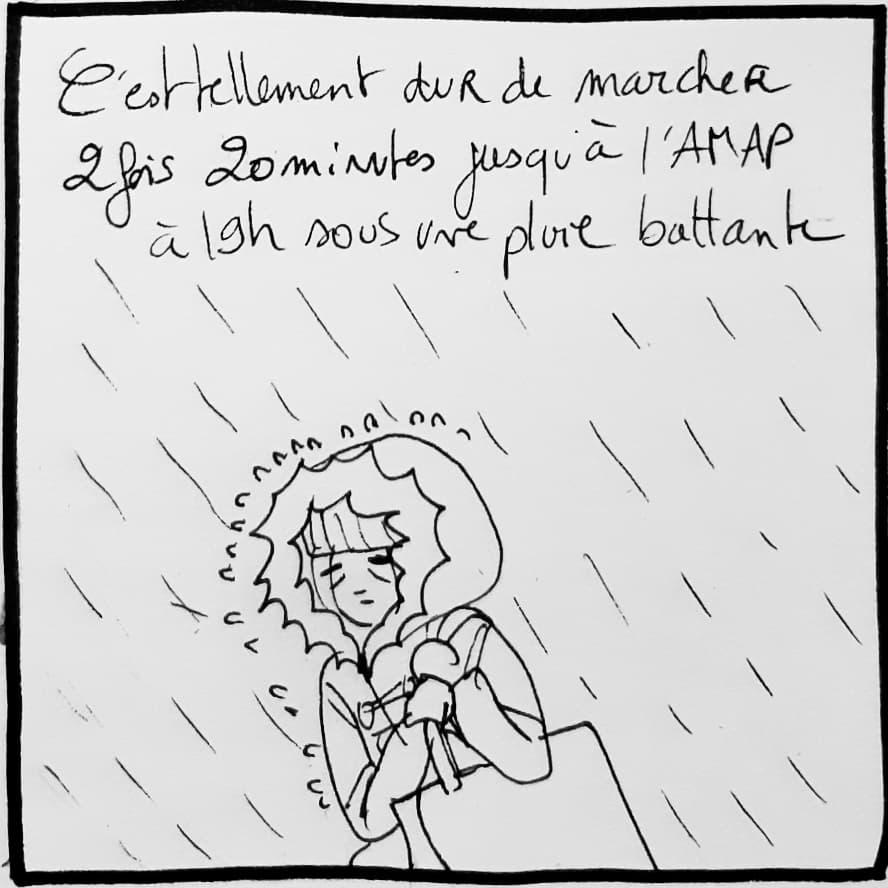 C'est tellement dur de marcher
2 fois 20 minutes jusqu'à l'AMAP
à 19h sous une pluie battante